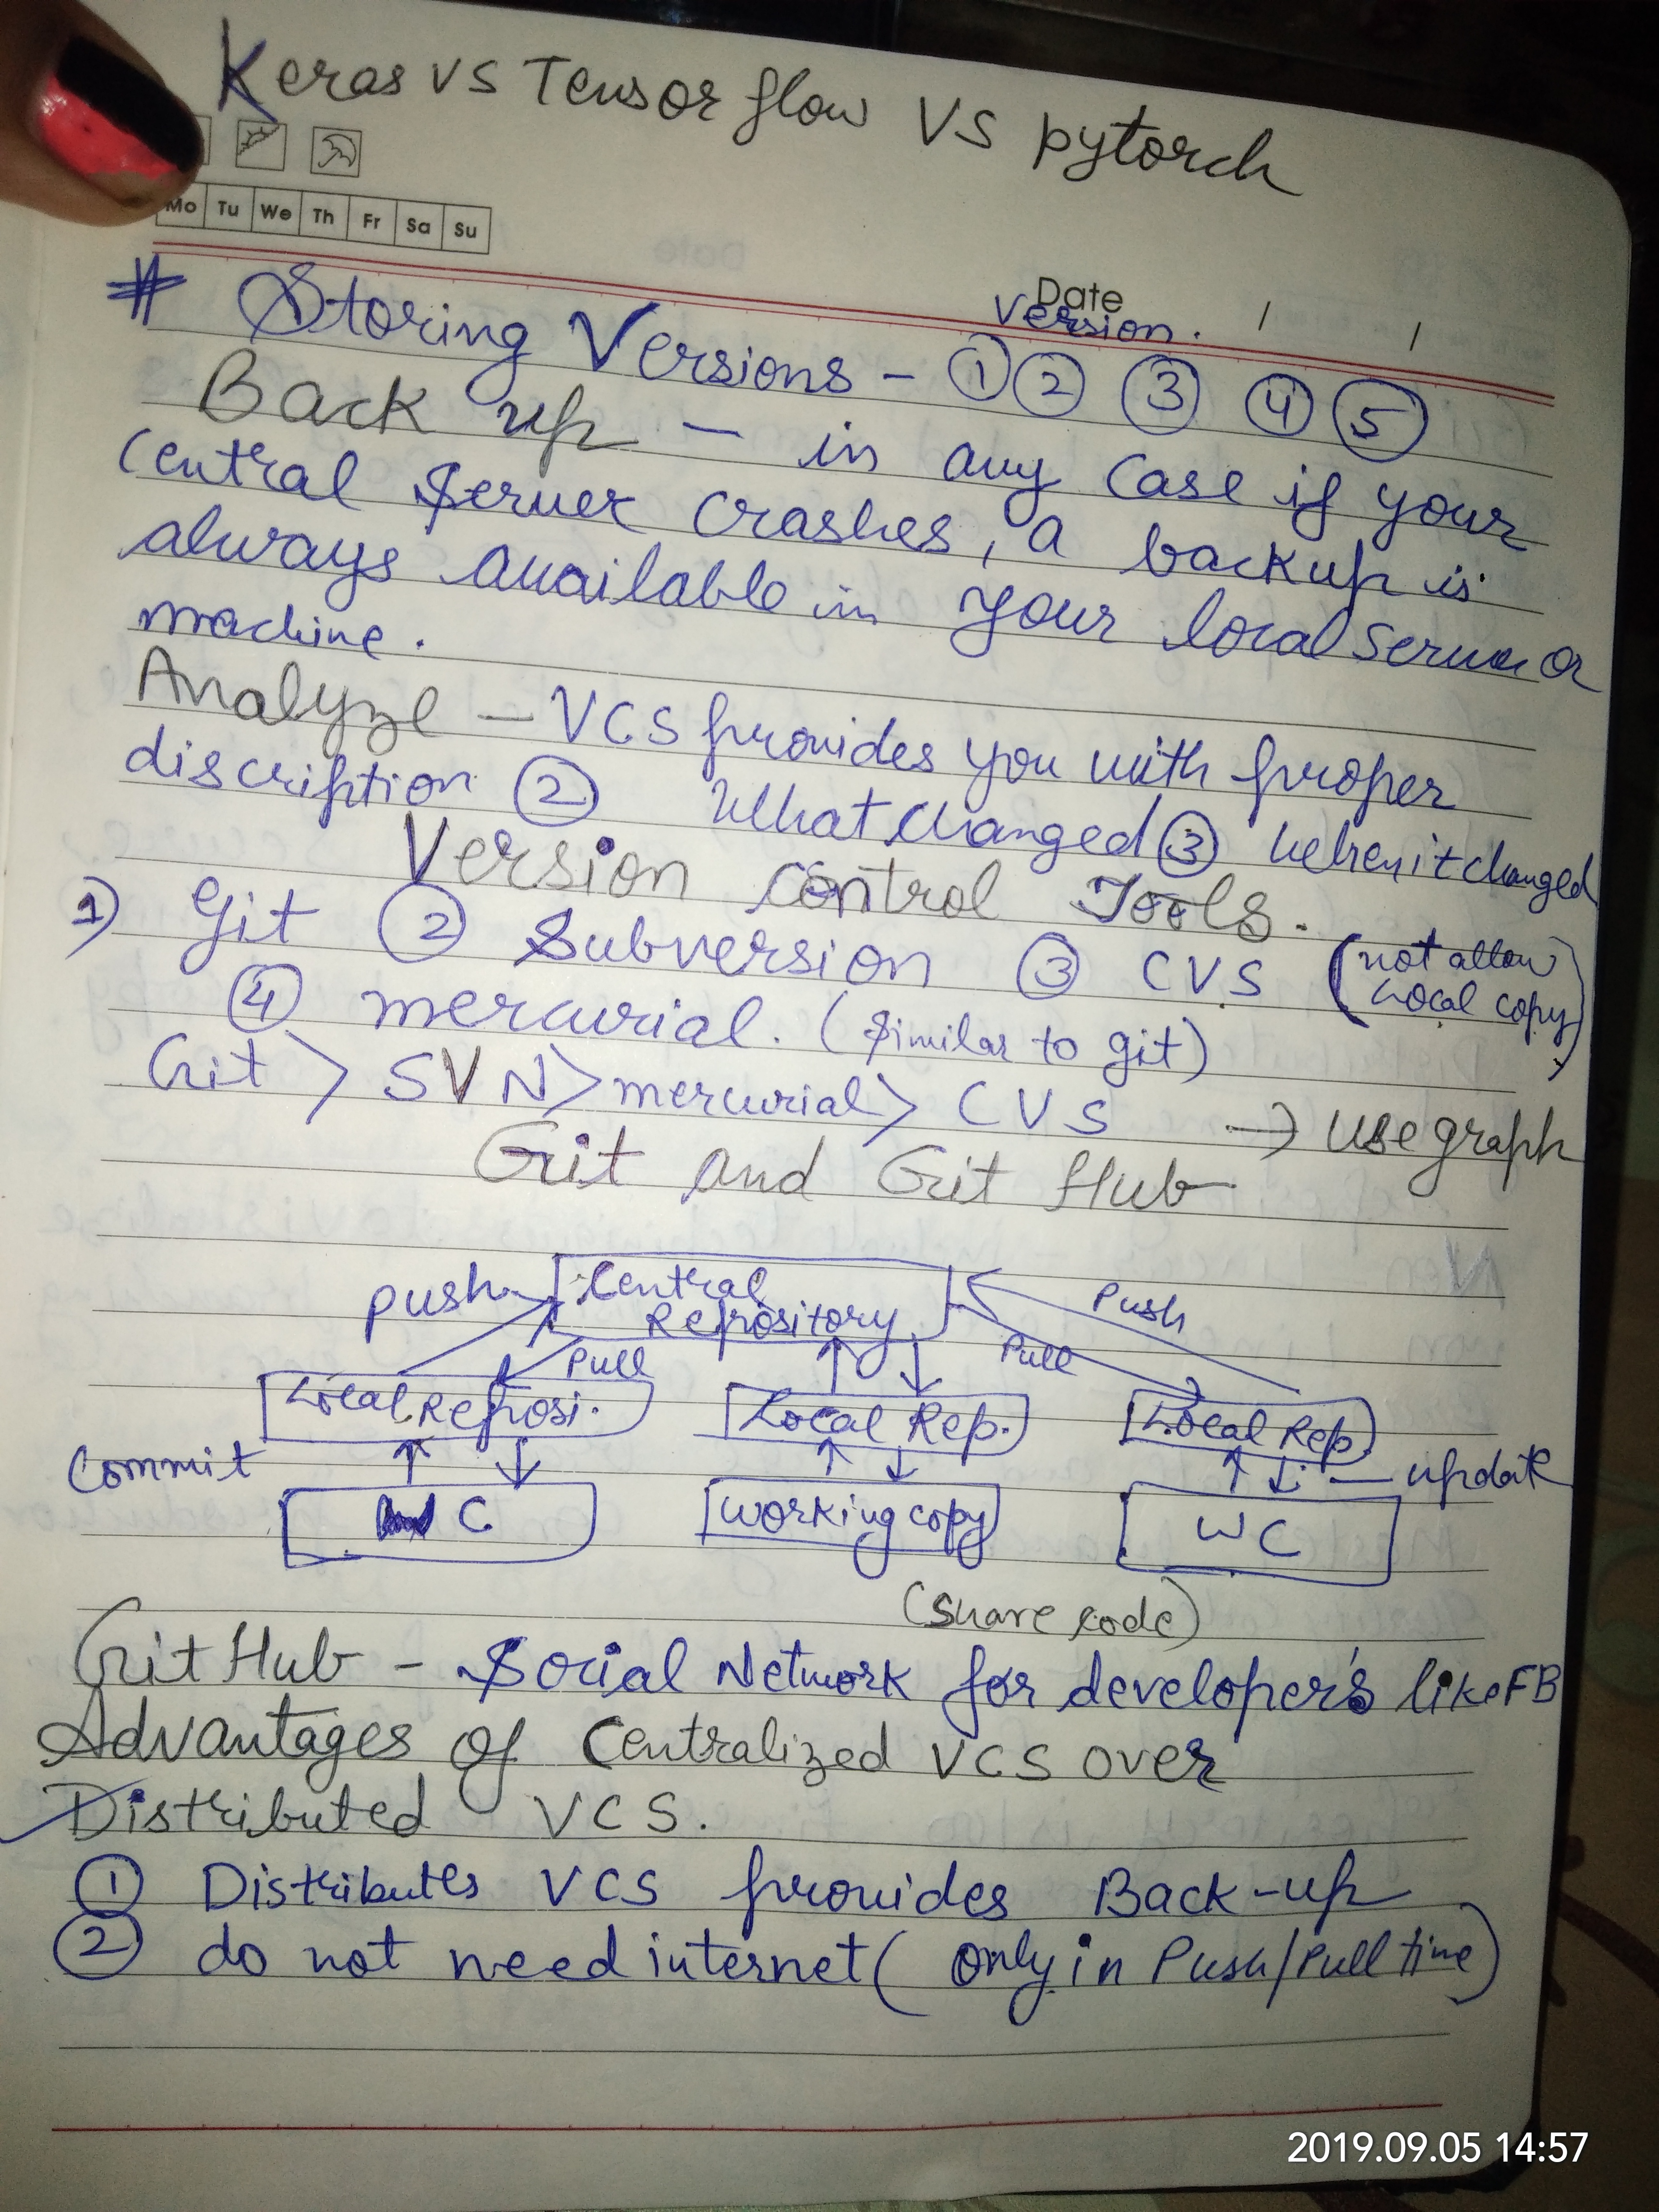 Keras vs Tensorflow VS pytorch
Mo Tu We Th Fr Sa Su
Date / /
Version.
# Storing Versions - ① ② ③ ④ ⑤
Back up - in any case if your
Central Server crashes, a backup is
always available in your local server or
machine.
Analyze - VCS provides you with proper
discription ② What changed ③ when it changed
Version control Tools.
1) Git ② Subversion ③ CVS (not allow
local copy)
④ mercurial. (Similar to git)
Git > SVN > mercurial > CVS → use graph
Git and Git Hub
push Central Push
Repository
Pull Pull
Local Reposi. Local Rep. Local Rep.
Commit update
C Working copy WC
(share code)
Git Hub - Social Network for developer's like FB
Advantages of Centralized VCS over
Distributed VCS.
① Distributes VCS provides Back-up
② do not need internet (only in Push/Pull time)
2019.09.05 14:57